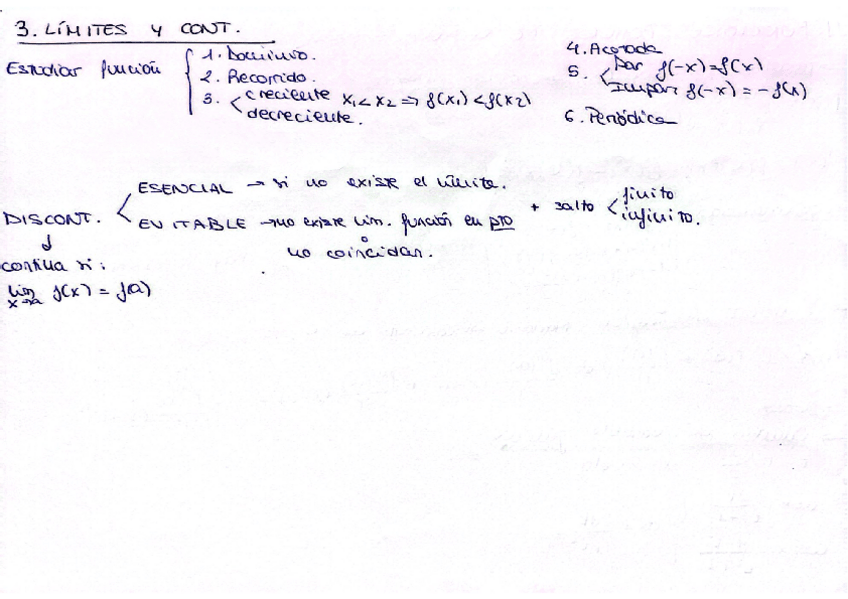 3. LÍMITES Y CONT.
Estudiar función { 1. Dominio.
2. Recorrido.
3. < creciente x₁ < x₂ ⇒ f(x₁) < f(x₂)
decreciente.
4. Acotada
5. < Par f(-x) = f(x)
Impar f(-x) = -f(x)
6. Periódica
DISCONT. < ESENCIAL → si no existe el límite.
EVITABLE → no existe lim. función en pto + salto < finito
infinito.
o
no coincidan.
↓
continua si:
lim x→a f(x) = f(a)